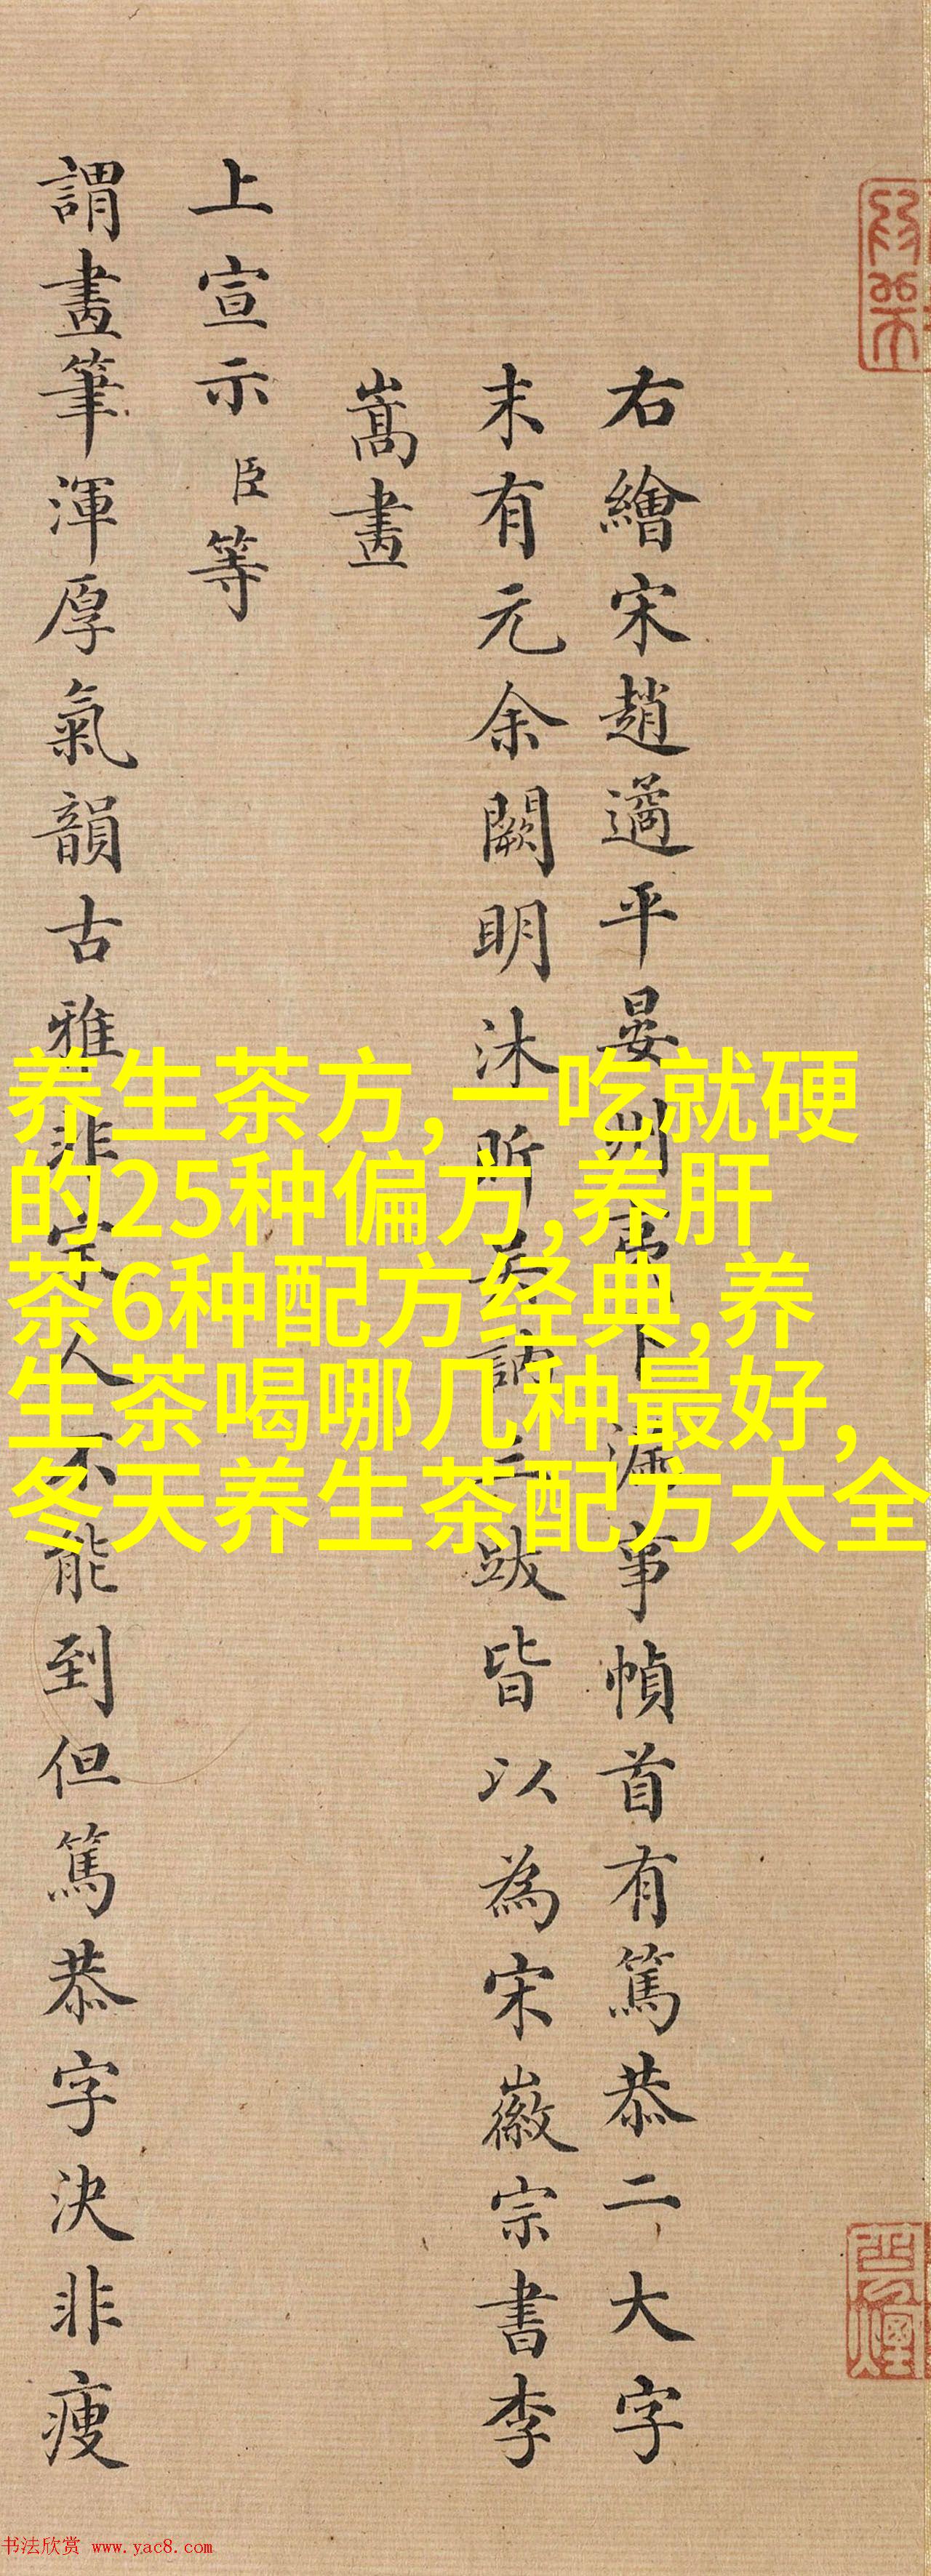 右繪宋趙遹平晏州夷卜漏事幀首有篤恭二大字
末有元余闕明沐昕
跋皆以為宋徽宗書李
嵩畫
上宣示臣等
謂畫筆渾厚氣韻古雅非宋人不能到但篤恭字決非瘦
养生茶方,一吃就硬
的25种偏方,养肝
茶6种配方经典,养
生茶喝哪几种最好,
冬天养生茶配方大全
书法欣赏 www.yac8.com